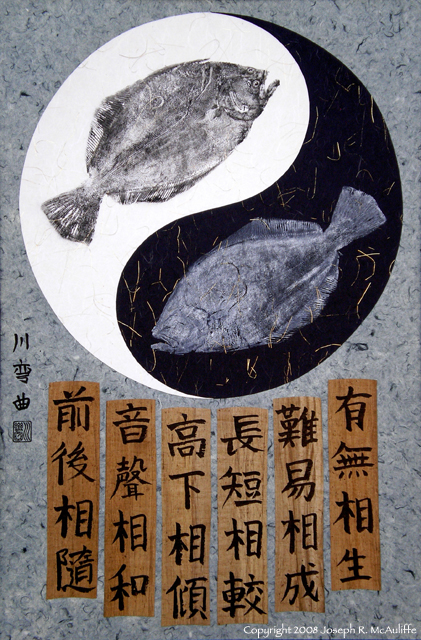 有無相生
難易相成
長短相較
高下相傾
音聲相和
前後相隨
川弯曲
Copyright 2008 Joseph R. McAuliffe